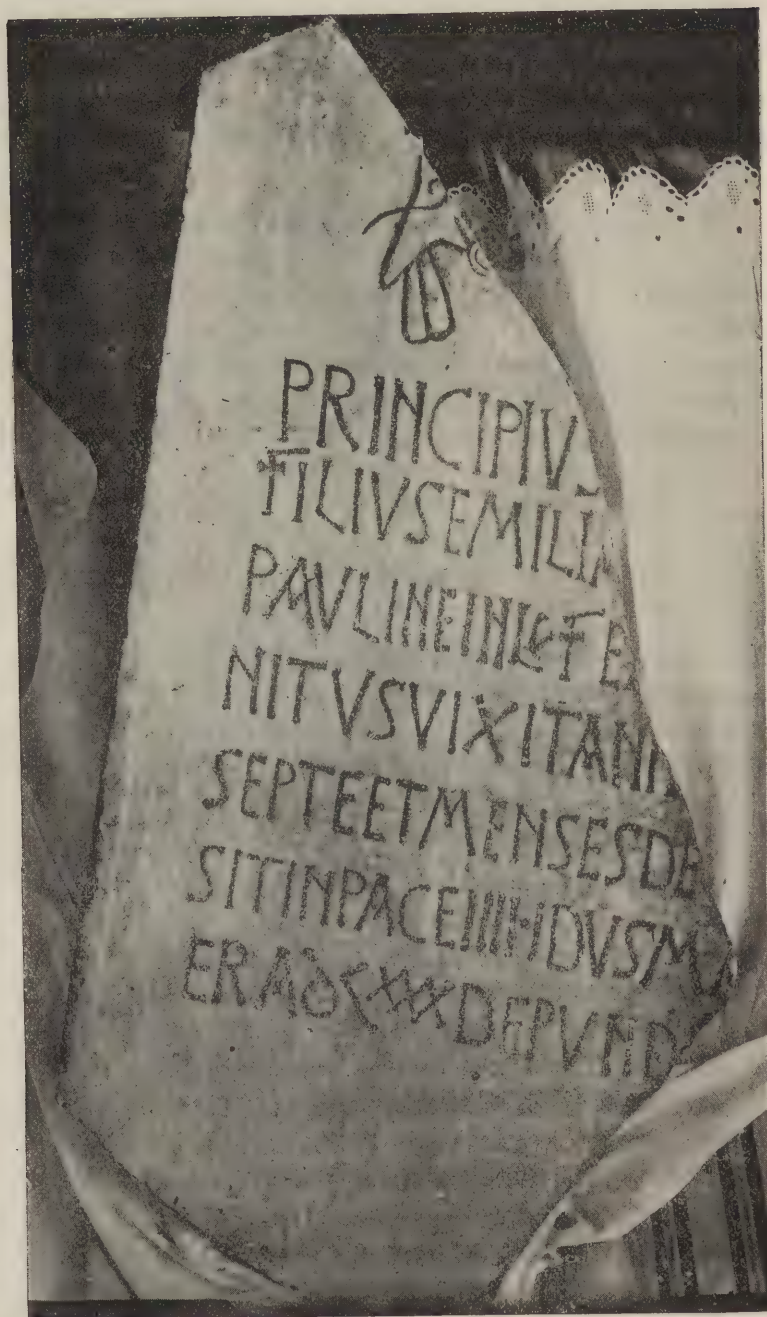 PRINCIPIV
FILIVSEMILIA
PAVLINEINL
NITVSVIXITANN
SEPTEETMENSESDE
SITINPACEIIIIIDVSMA
ERA XXX DEFVND